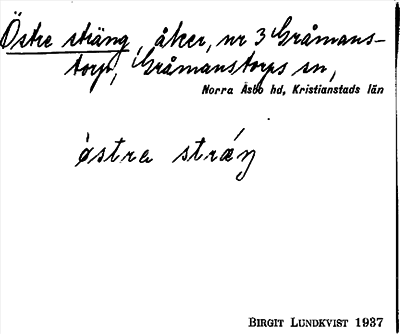 Östre sträng, åker, nr 3 Gråmans-
torp, Gråmanstorps sn,
Norra Åsbo hd, Kristianstads län
östra stræŋ
BIRGIT LUNDKVIST 1937